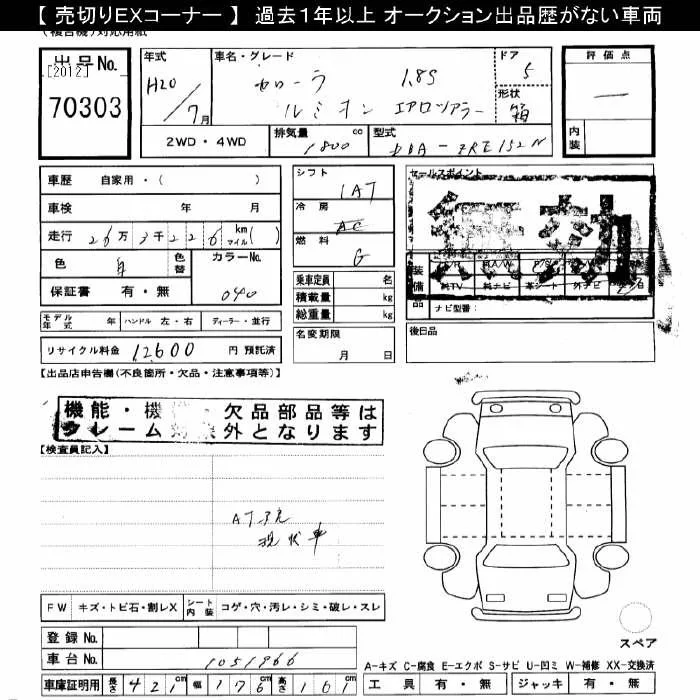 【 売切りEXコーナー 】 過去1年以上 オークション出品歴がない車両
(複合機)対応用紙
出品No.
[2012]
70303
年式
H20/7月
車名・グレード
カローラ 1.8S
ルミオン エアロツアラー
ドア
5
形状
箱
評価点
—
内装
2WD・4WD
排気量 1800 cc
型式 DBA-ZRE152N
車歴 自家用・( )
車検 年 月
走行 26万3千226 km マイル( )
色 白 色替
カラーNo. 040
保証書 有・無
モデル年式 年 ハンドル 左・右 ディーラー・並行
リサイクル料金 12600 円 預託済
シフト 1AT
冷房 AC
燃料 G
乗車定員 名
積載量 kg
総重量 kg
名変期限
月 日
セールスポイント
装備品
純TV 純ナビ 革シート 外ナビ
ナビ型番:
後日品
【出品店申告欄(不良箇所・欠品・注意事項等)】
機能・機 欠品部品等は
クレーム対象外となります
【検査員記入】
AT不完
現状車
FW キズ・トビ石・割レX シート内装 コゲ・穴・汚レ・シミ・破レ・スレ
登録No.
車台No. 1051966
車庫証明用 長さ 421cm 幅 176cm 高さ 161cm
スペア
A-キズ C-腐食 E-エクボ S-サビ U-凹ミ W-補修 XX-交換済
工具 有・無 ジャッキ 有・無